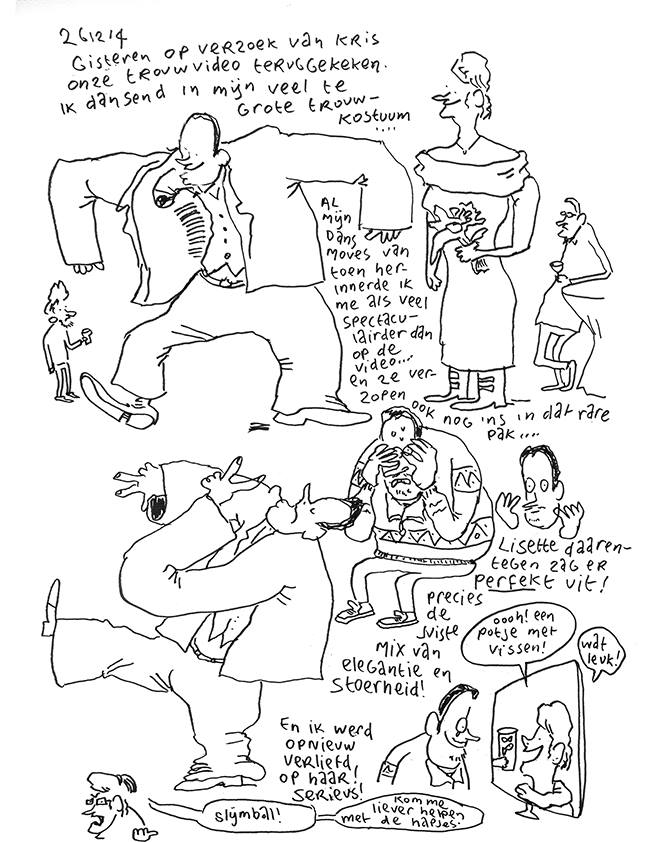 261214
Gisteren op verzoek van Kris
onze trouwvideo teruggekeken.
Ik dansend in mijn veel te
grote trouw-
kostuum
....
Al
mijn
dans
moves van
toen her-
innerde ik
me als veel
spectacu-
lairder dan
op de
video...
en ze ver-
zopen
ook nog 'ns in dat rare
pak....
Lisette daaren-
tegen zag er
perfekt uit!
precies
de
juiste
mix van
elegantie en
stoerheid!
oooh! een
potje met
vissen!
wat
leuk!
En ik werd
opnieuw
verliefd
op haar!
Serieus!
slijmbal!
Kom me
liever helpen
met de hapjes.